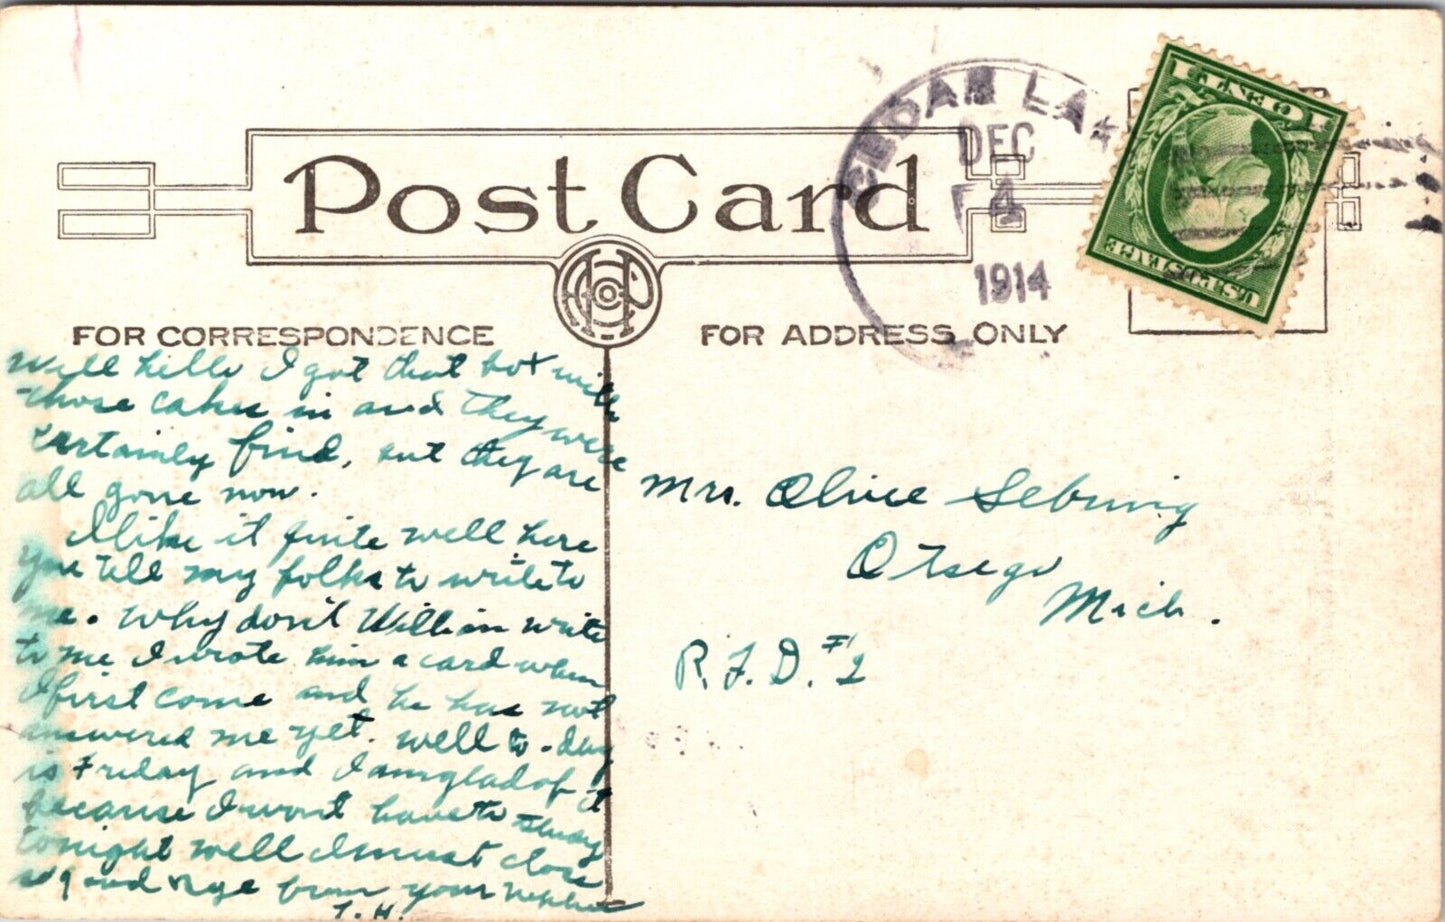 Post Card
CEDAR LAK
DEC
4
1914
FOR CORRESPONDENCE
FOR ADDRESS ONLY
U.S. POSTAGE
Well hello I got that box with
those cakes in and they were
certainly fine, but they are
all gone now.
I like it finite well here
you tell my folks to write to
me. Why don't William write
to me I wrote him a card when
I first come and he has not
answered me yet. well to-day
is Friday and I am glad of it
because I wont have to study
tonight well I must close
so good bye from your nephew
T. H.
Mrs. Olive Sebring
Otsego
Mich.
R.F.D. #2